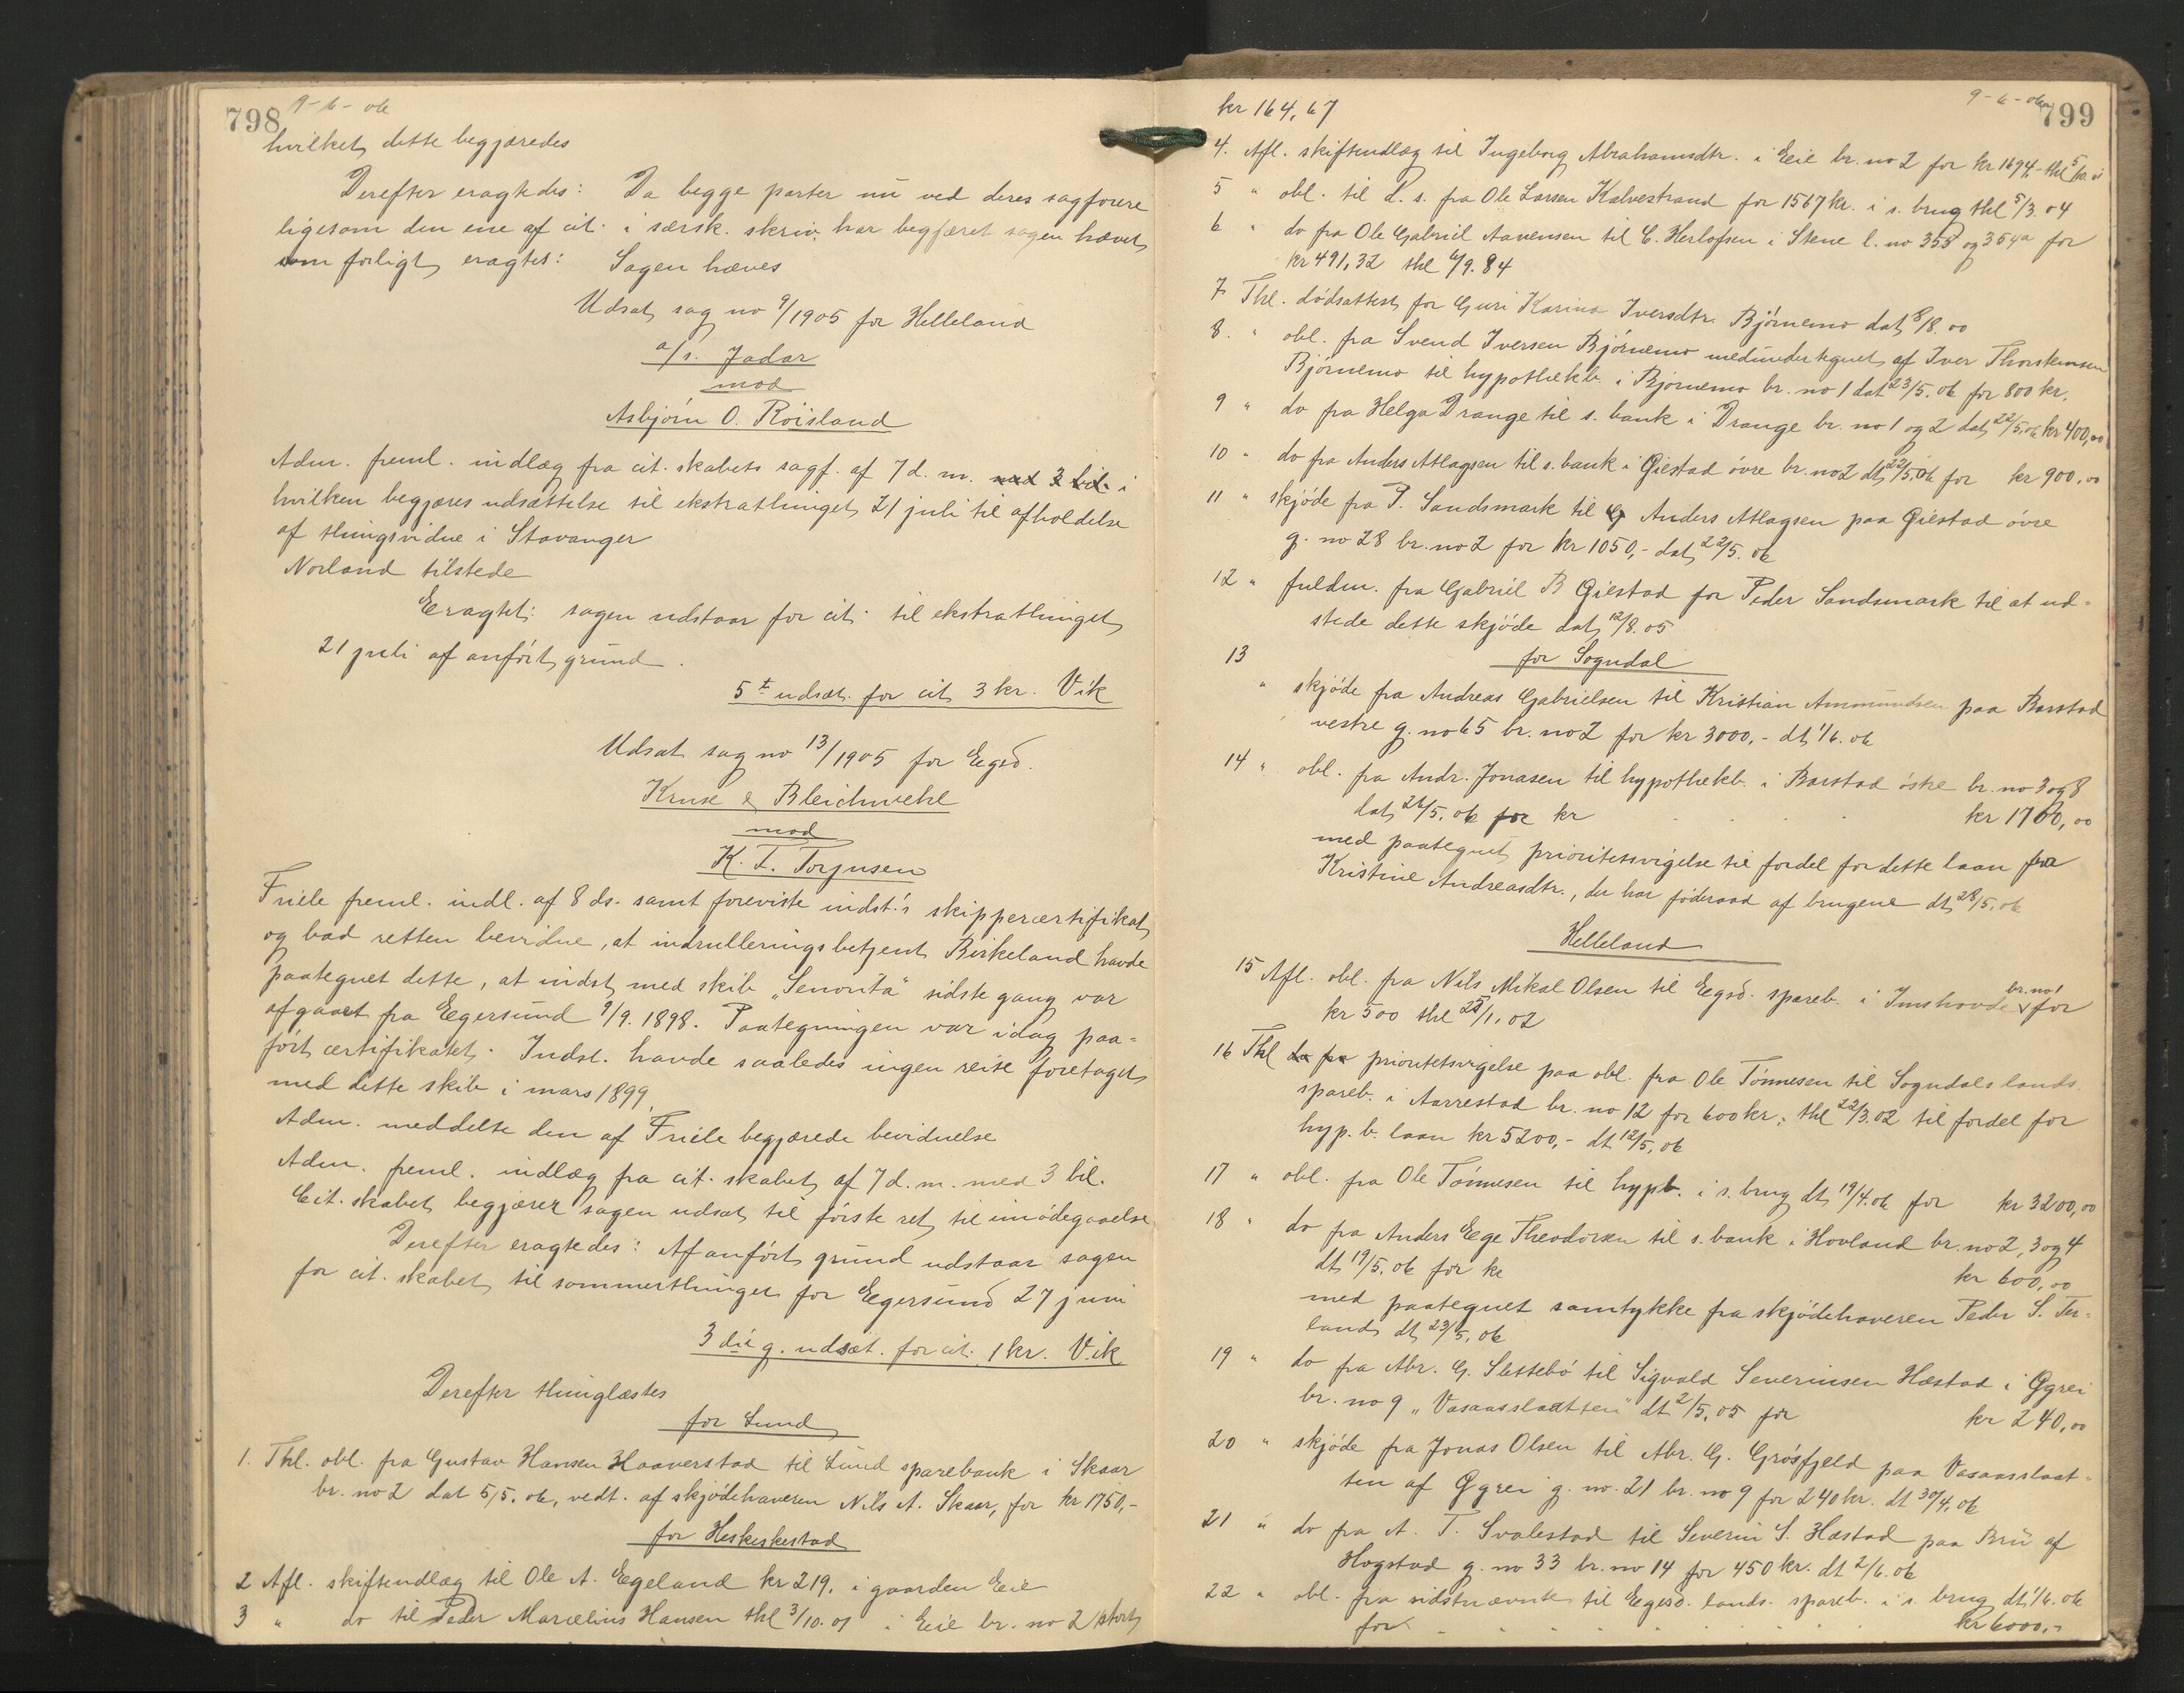 798 9-6-06
hvilket dette begjæredes
Derefter eragtedes: Da begge parter nu ved deres sagførere
ligesom den ene af cit. i særsk. skriv. har begjæret sagen hævet
som forligt eragtes: Sagen hæves
Udsat sag no 9/1905 for Helleland
a/s. Jadar
mod
Asbjørn O. Röisland
Adm. freml. indlæg fra cit.skabets sagf. af 7 d. m. med 3 bil. i
hvilken begjæres udsættelse til ekstrathinget 21 juli til afholdelse
af thingsvidne i Stavanger
Norland tilstede
Eragtet: sagen udstaar for cit. til ekstrathinget
21 juli af anført grund.
5t udsæt. for cit 3 kr. Vik
Udsat sag no 13/1905 for Egsd.
Kruse & Bleichwehl
mod
K. T. Torjusen
Friele freml. indl. af 8 ds. samt foreviste indst.'s skippercertifikat
og bad retten bevidne, at indrulleringsbetjent Birkeland havde
paategnet dette, at indst. med skib „Senorita“ sidste gang var
afgaaet fra Egersund 9/9. 1898. Paategningen var idag paa-
ført certifikatet. Indst. havde saaledes ingen reise foretaget
med dette skib i mars 1899.
Adm. meddelte den af Friele begjærede bevidnelse
Adm. freml. indlæg fra cit.skabet af 7 d. m. med 3 bil.
Cit.skabet begjærer sagen udsat til første ret til imødegaaelse
Derefter eragtedes: Af anført grund udstaar sagen
for cit.skabet til sommerthinget for Egersund 27 juni
3die g. udsæt. for cit. 1 kr. Vik
Derefter thinglæstes
for Lund
1. Thl. obl. fra Gustav Hansen Haaverstad til Lund sparebank i Skaar
br. no 2 dat 5/5. 06, vedt. af skjødehaveren Nils A. Skaar, for kr 1750,-
for Heskeskestad
2 Afl. skifteudlæg til Ole A. Egeland kr 219. i gaarden Eie
3 " do til Peder Marcelius Hansen thl 3/10. 01 i Eie br. no 2 stort
9-6-06 799
kr 164,67
4. Afl. skifteudlæg til Ingeborg Abrahamsdtr. i Eie br. no 2 for kr 1694,- thl
5 " obl. til L. s. fra Ole Larsen Kalvestrand for 1567 kr. i s. brug thl 5/3. 04
6 " do fra Ole Gabriel Aanensen til C. Herlofsen i Stene l. no 353 og 354a for
kr 491,32 thl 4/9. 84
7 Thl. dødsattest for Guri Karina Iversdtr. Bjørnemo dat 8/8. 00
8. " obl. fra Svend Iversen Bjørnemo medundertegnet af Iver Thorstensen
Bjørnemo til hypothekb. i Bjørnemo br. no 1 dat 23/5. 06 for 800 kr.
9 " do fra Helga Drange til s. bank i Drange br. no 1 og 2 dat 22/5. 06 kr 400,00
10 " do fra Anders Atlagsen til s. bank i Giestad øvre br. no 2 dt 22/5. 06 for kr 900,00
11 " skjøde fra P. Sandsmark til Anders Atlagsen paa Giestad øvre
g. no 28 br. no 2 for kr 1050,- dat 22/5. 06
12 " fuldm. fra Gabriel B Giestad for Peder Sandsmark til at ud-
stede dette skjøde dat 12/8. 05
for Sogndal
13 " skjøde fra Andreas Gabrielsen til Kristian Ammundsen paa Barstad
vestre g. no 65 br. no 2 for kr 3000,- dt 1/6. 06
14 " obl. fra Andr. Jonasen til hypothekb. i Barstad østre br. no 3 og 8
dat 26/5. 06 for kr . . . kr 1700,00
med paategnet prioritetsvigelse til fordel for dette laan fra
Kristine Andreasdtr., der har føderaad af brugene dt 28/5. 06
Helleland
15 Afl. obl. fra Nils Mikal Olsen til Egsd. spareb. i Imshovde br. no 1 for
kr 500 thl 25/1. 02
16 Thl do fra prioritetsvigelse paa obl. fra Ole Tønnesen til Sogndals lands.
spareb. i Aarrestad br. no 12 for 600 kr.; thl 22/3. 02 til fordel for
hyp. b. laan kr 5200,- dt 12/5. 06
17 " obl. fra Ole Tønnesen til hypb. i s. brug dt 19/4. 06 for kr 3200,00
18 " do fra Anders Ege Theodorsen til s. bank i Hovland br. no 2, 3 og 4
dt 19/5. 06 for kr kr 600,00
med paategnet samtykke fra skjødehaveren Peder S. Ter-
land dt 23/5. 06
19 " do fra Abr. G. Slettebø til Sigvald Severinsen Hæstad i Ggrei
br. no 9 „Vasaasslaatten“ dt 2/5. 05 for kr 240,00
20 " skjøde fra Jonas Olsen til Abr. G. Grøsfjeld paa Vasaasslaat-
ten af Ggrei g. no. 21 br. no 9 for 240 kr. dt 30/4. 06
21 " do fra A. T. Svalestad til Severin S. Hæstad paa Bru af
Hogstad g. no 33 br. no 14 for 450 kr. dt 2/6. 06
22 " obl. fra sidstnævnte til Egersd. lands. spareb. i s. brug dt 1/6. 06
for . . . . . . . kr 6000,-